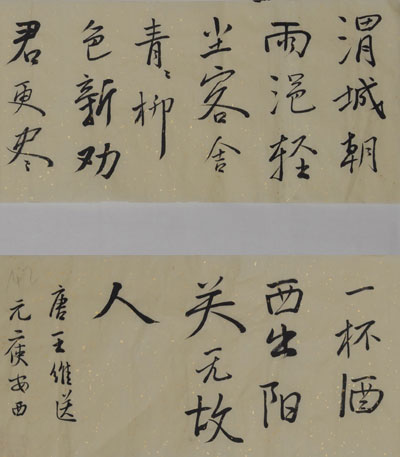 渭城朝
雨浥轻
尘客舍
青々柳
色新劝
君更尽
一杯酒
西出阳
关无故
人
唐王维送
元二使安西